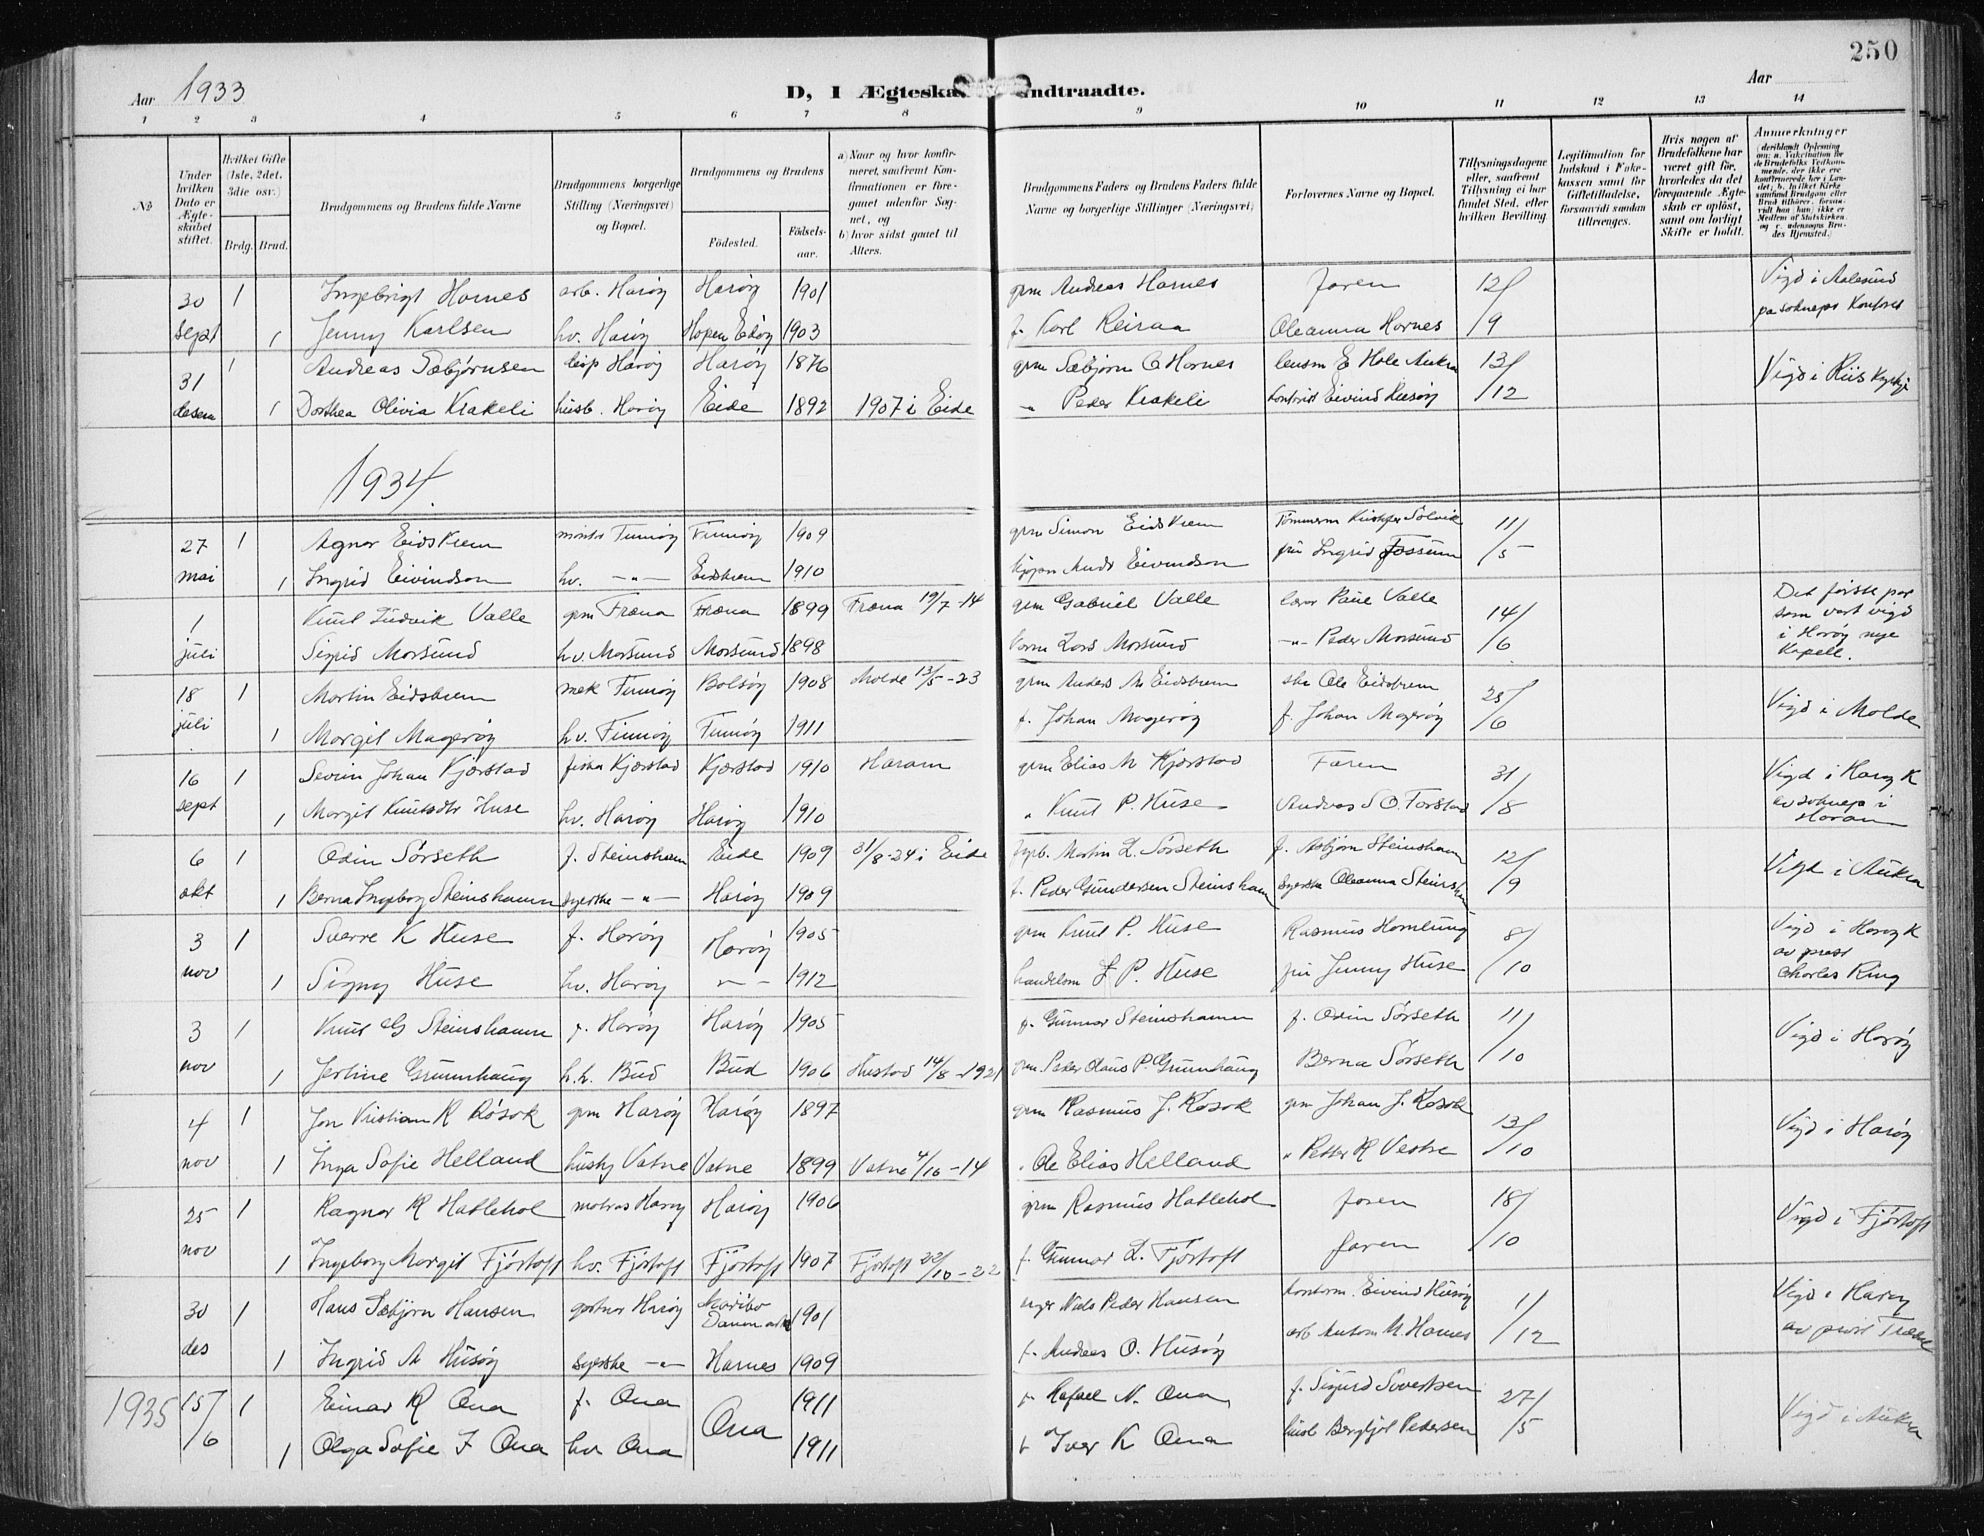 250
Aar 1933
D, I Ægteska ndtraadte.
Aar
1 2 3 4 5 6 7 8 9 10 11 12 13 14
No
Under hvilken Dato er Ægteskabet stiftet.
Hvilket Gifte (1ste, 2det, 3die osv.)
Brdg. Brud.
Brudgommens og Brudens fulde Navne
Brudgommens borgerlige Stilling (Næringsvei) og Bopæl.
Brudgommens og Brudens
Fødested. Fødselsaar.
a) Naar og hvor konfirmeret, saafremt Konfirmationen er foregaaet udenfor Sognet, og
b) hvor sidst gaaet til Alters.
Brudgommens Faders og Brudens Faders fulde Navne og borgerlige Stillinger (Næringsvei)
Forlovernes Navne og Bopæl.
Tillysningsdagene eller, saafremt Tillysning ei har fundet Sted, efter hvilken Bevilling.
Legitimation for Indskud i Enkekassen samt for Giftetilladelse, forsaavidt saadan tiltrænges.
Hvis nogen af Brudefolkene har været gift før, hvorledes da det foregaaende Ægteskab er opløst, samt om lovligt Skifte er holdt.
Anmærkninger
30 1 Ingebrigt Harnes arb. Harøy Harøy 1901 grm Andreas Harnes faren 12/ Vigd i Aalesund
sept 1 Jenny Karlsen hv. Harøy Hopen Edøy 1903 f. Karl Reiraa Oleanna Harnes /9
31 1 Andreas Sæbjørnsen Harøy Harøy 1876 grm Sæbjørn O Harnes lensm E Hole Aukra 13/ Vigd i Riis
desem 1 Dorthea Olivia Krakeli husb. Harøy Eide 1892 1907 i Eide " Peder Krakeli Eivind Husøy /12
1934.
27 1 Agnar Eidskrem Finnøy Finnøy 1909 grm Simon Eidskrem Tømmerm Sølvik 11/
mai 1 Ingrid Eivindson hv. -"- Eidskrem 1910 Eivindson Ingrid Fossum /5
1 Knut Ludvik Valle grm Fræna Fræna 1899 Fræna 19/7-14 grm Gabriel Valle lærar Valle 14/ Det første par som vart vigd i Harøy nye Kapell.
juli Sigrid Morsund hv. Morsund Morsund 1898 Lars Morsund -"- Peder Morsund /6
18 1 Martin Eidskrem mek Finnøy Bolsøy 1908 Molde 13/5-23 grm Anders M Eidskrem Ole Eidskrem 28/ Vigd i Molde
juli 1 Margit Magerøy hv. Finnøy Finnøy 1911 f. Johan Magerøy f. Johan Magerøy /6
16 1 Sevrin Johan Kjærstad fiskar Kjærstad Kjærstad 1910 Haram grm Elias M Kjærstad Faren 31/ Vigd i Harøy K av soknep i Haram
sept 1 Margit Knutsdtr Huse hv. Harøy Harøy 1910 " Knut P. Huse Andreas S O. Farstad /8
6 1 Odin Sørseth f. Steinshamn Eide 1909 31/8-24 i Eide Martin L. Sørseth f. Asbjørn Steinshamn 12/ Vigd i Aukra
okt 1 Berna Ingeborg Steinshamn syerske -"- Harøy 1909 f. Peder Gundersen Steinshamn syerske Oleanna Steinshamn /9
3 1 Sverre K Huse f. Harøy Harøy 1905 grm Knut P. Huse Rasmus Hamlung 8/ Vigd i Harøy K av prest Charles Ring
nov 1 Signy Huse hv. Harøy -"- 1912 handelsm J P. Huse Jenny Huse /10
3 1 Knut G Steinshamn f. Harøy Harøy 1905 f. Gunnar Steinshamn f. Odin Sørseth 11/ Vigd i Harøy
nov 1 Jertine Grunnhaug h.h. Bud Bud 1906 Hustad 14/8-1921 grm. Peder Olaus P. Grunnhaug Berna Sørseth /10
4 1 Jon Kristian R Røsok grm Harøy Harøy 1897 grm Rasmus J. Røsok grm Johan J. Røsok 13/ Vigd i Harøy
nov 1 Inga Sofie Helland Vatne Vatne 1899 Vatne 4/10-14 " Ole Elias Helland " Petter R Vestre /10
25 1 Ragnar R Hatlehol Harøy Harøy 1906 grm Rasmus Hatlehol faren 18/ Vigd i Fjørtoft
nov 1 Ingeborg Margit Fjørtoft hv. Fjørtoft Fjørtoft 1907 Fjørtoft 22/10-22 f. Gunnar L. Fjørtoft faren /10
30 1 Hans Sæbjørn Hansen gartnar Harøy Maribo Danmark 1901 Niels Peder Hansen kontorm. Eivind Husøy 1/ Vigd i Harøy av prost
des 1 Ingrid A Husøy syerske -"- Harnes 1909 f. Andreas O. Husøy arb Antom M. Harnes /12
1935 15/6 1 Einar R Ona f. Ona Ona 1911 f. Rafael N. Ona f. Sigurd Sivertsen 27/ Vigd i Aukra
1 Olga Sofie I Ona hv Ona 1911 f Iver K Ona Bergljot Pedersen /5